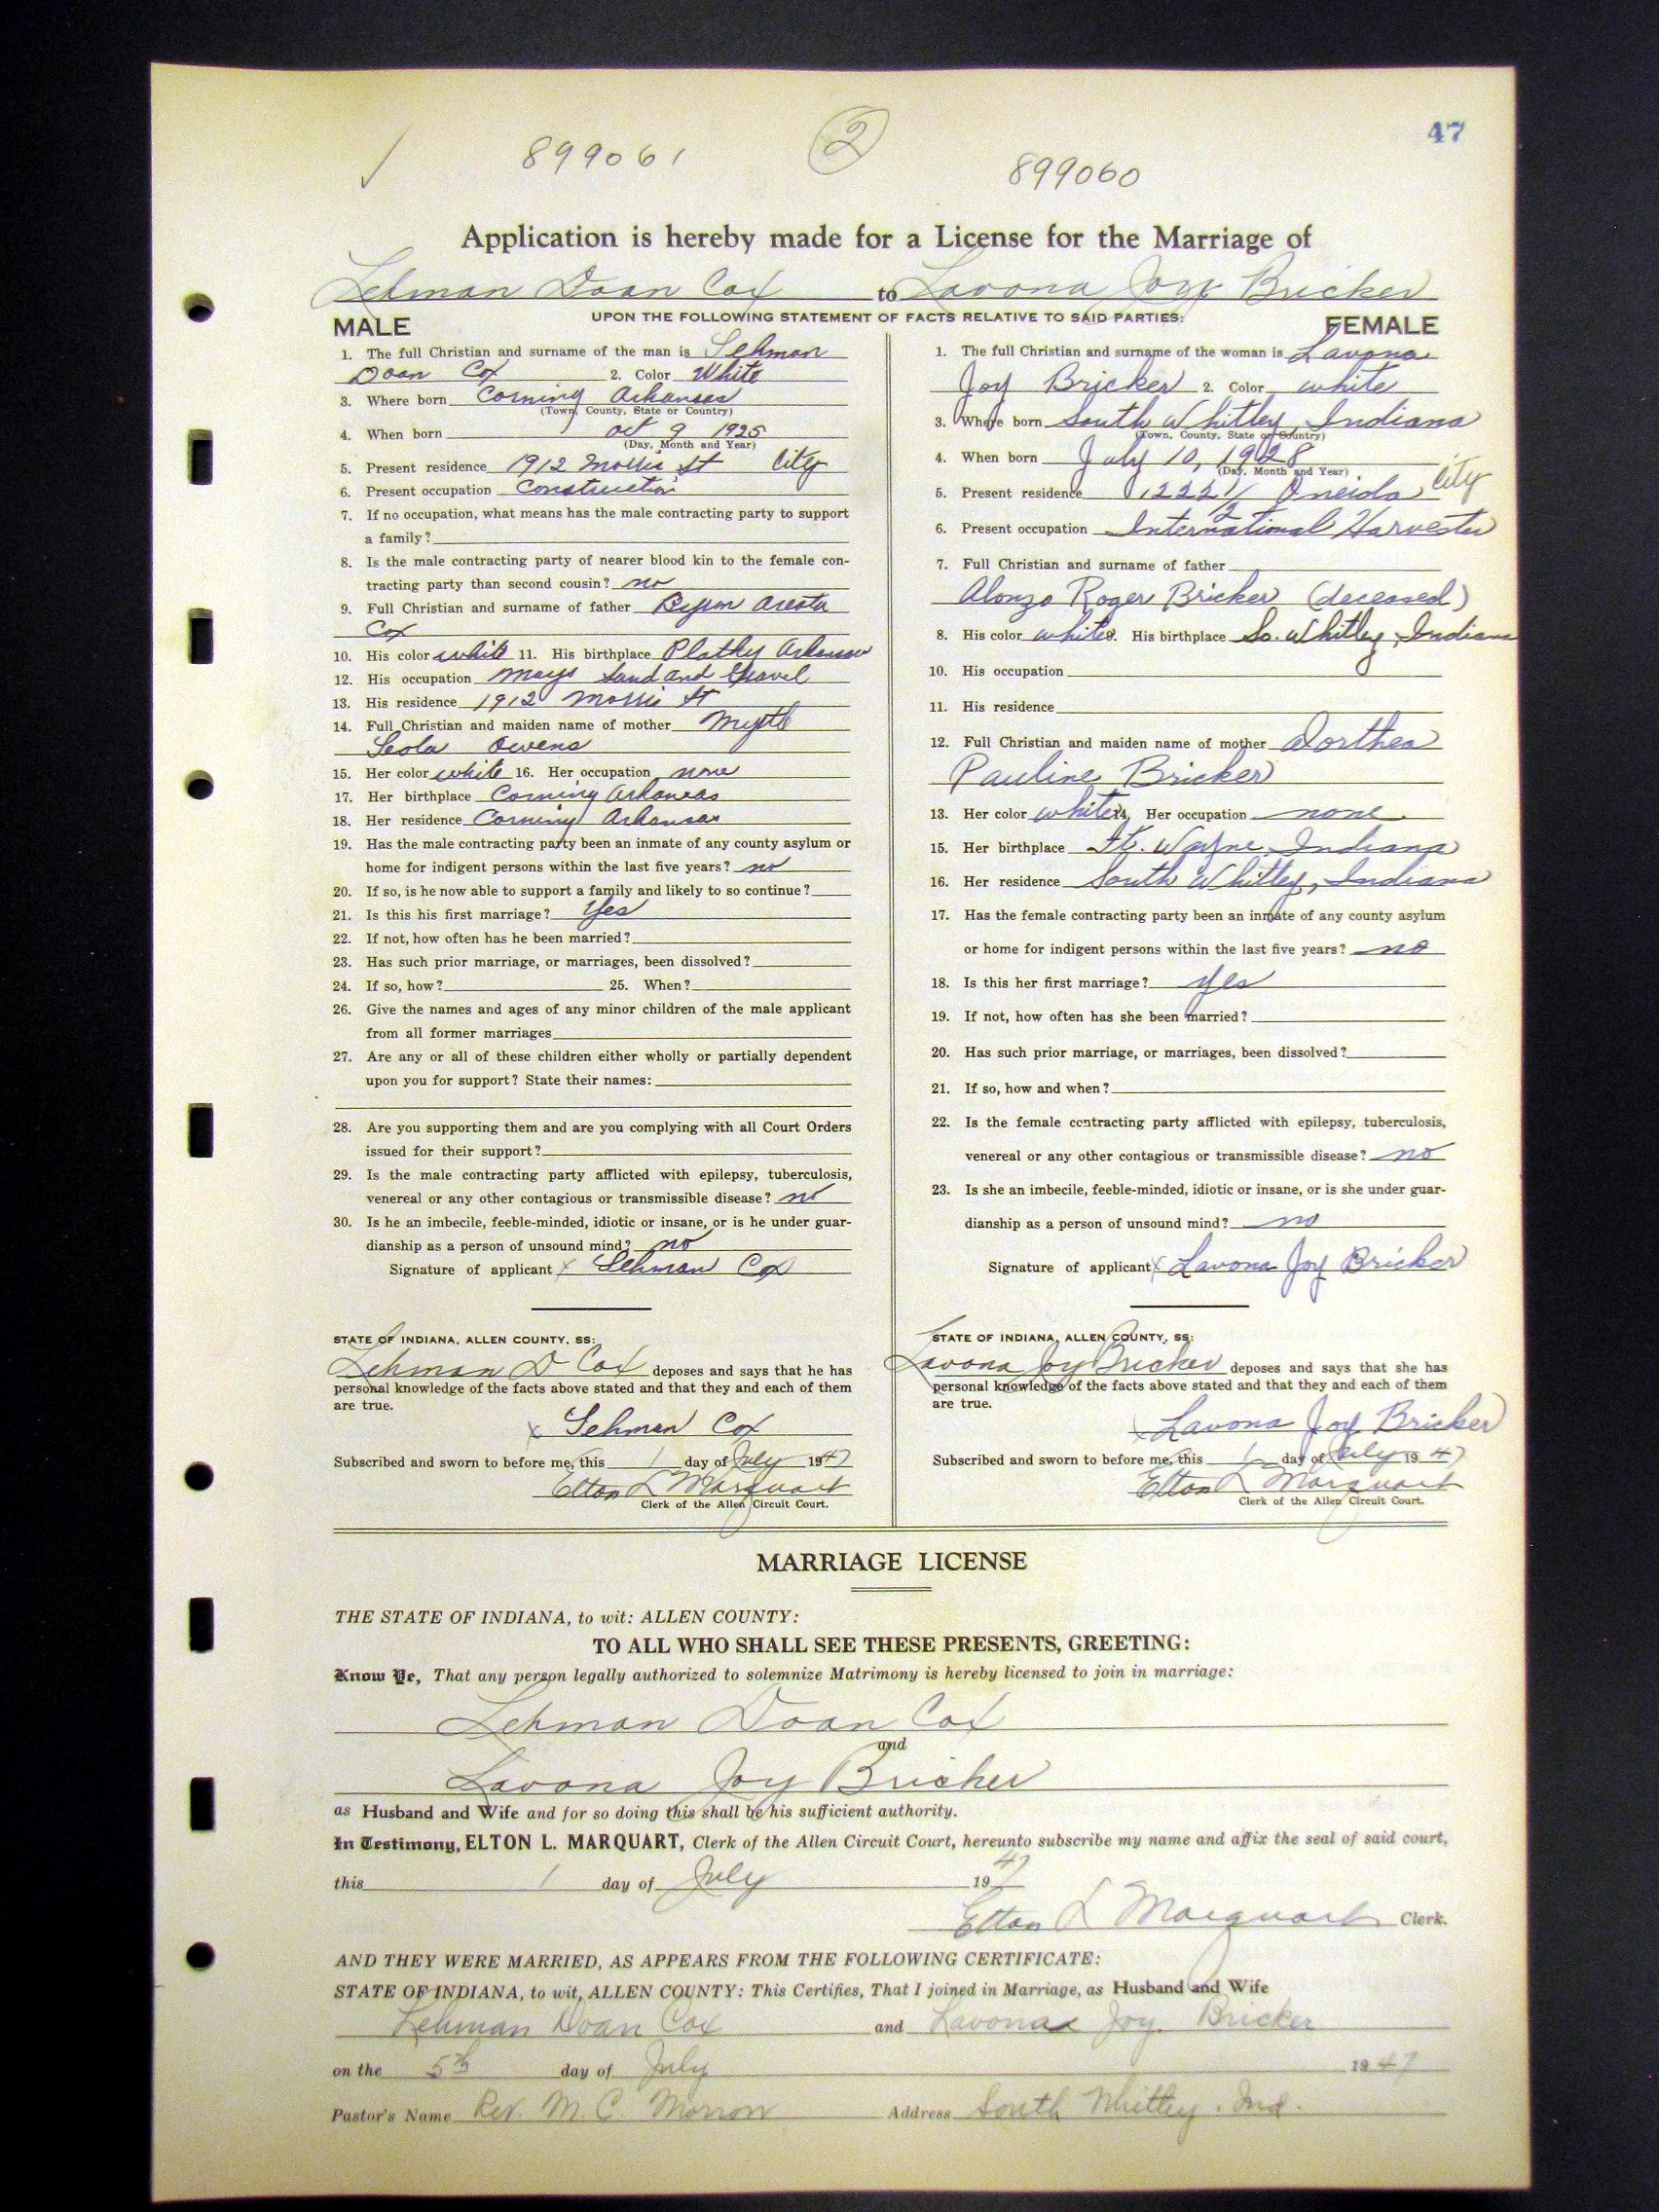 47
899061 2 899060
Application is hereby made for a License for the Marriage of
Lehman Doan Cox to Lavona Joy Bricker
UPON THE FOLLOWING STATEMENT OF FACTS RELATIVE TO SAID PARTIES:
MALE
1. The full Christian and surname of the man is Lehman
Doan Cox 2. Color White
3. Where born Corning Arkansas
(Town, County, State or Country)
4. When born Oct 9 1925
(Day, Month and Year)
5. Present residence 1912 Morris St City
6. Present occupation Construction
7. If no occupation, what means has the male contracting party to support
a family?
8. Is the male contracting party of nearer blood kin to the female con-
tracting party than second cousin? no
9. Full Christian and surname of father
Cox
10. His color white 11. His birthplace Arkansas
12. His occupation Mays Sand and Gravel
13. His residence 1912 Morris St
14. Full Christian and maiden name of mother Myrtle
Leola Owens
15. Her color white 16. Her occupation none
17. Her birthplace Corning Arkansas
18. Her residence Corning Arkansas
19. Has the male contracting party been an inmate of any county asylum or
home for indigent persons within the last five years? no
20. If so, is he now able to support a family and likely to so continue?
21. Is this his first marriage? Yes
22. If not, how often has he been married?
23. Has such prior marriage, or marriages, been dissolved?
24. If so, how? 25. When?
26. Give the names and ages of any minor children of the male applicant
from all former marriages
27. Are any or all of these children either wholly or partially dependent
upon you for support? State their names:
28. Are you supporting them and are you complying with all Court Orders
issued for their support?
29. Is the male contracting party afflicted with epilepsy, tuberculosis,
venereal or any other contagious or transmissible disease? no
30. Is he an imbecile, feeble-minded, idiotic or insane, or is he under guar-
dianship as a person of unsound mind? no
Signature of applicant x Lehman Cox
STATE OF INDIANA, ALLEN COUNTY, SS:
Lehman D Cox deposes and says that he has
personal knowledge of the facts above stated and that they and each of them
are true.
x Lehman Cox
Subscribed and sworn to before me, this 1 day of July 1947
Elton L Marquart
Clerk of the Allen Circuit Court.
FEMALE
1. The full Christian and surname of the woman is Lavona
Joy Bricker 2. Color white
3. Where born South Whitley, Indiana
(Town, County, State or Country)
4. When born July 10, 1928
(Day, Month and Year)
5. Present residence 1222 1/2 Oneida City
6. Present occupation International Harvester
7. Full Christian and surname of father
Alonzo Roger Bricker (deceased)
8. His color white 9. His birthplace So. Whitley, Indiana
10. His occupation
11. His residence
12. Full Christian and maiden name of mother Dorthea
Pauline Bricker
13. Her color white 14. Her occupation none
15. Her birthplace Ft. Wayne, Indiana
16. Her residence South Whitley, Indiana
17. Has the female contracting party been an inmate of any county asylum
or home for indigent persons within the last five years? no
18. Is this her first marriage? yes
19. If not, how often has she been married?
20. Has such prior marriage, or marriages, been dissolved?
21. If so, how and when?
22. Is the female contracting party afflicted with epilepsy, tuberculosis,
venereal or any other contagious or transmissible disease? no
23. Is she an imbecile, feeble-minded, idiotic or insane, or is she under guar-
dianship as a person of unsound mind? no
Signature of applicant x Lavona Joy Bricker
STATE OF INDIANA, ALLEN COUNTY, SS:
Lavona Joy Bricker deposes and says that she has
personal knowledge of the facts above stated and that they and each of them
are true.
x Lavona Joy Bricker
Subscribed and sworn to before me, this 1 day of July 1947
Elton L Marquart
Clerk of the Allen Circuit Court.
MARRIAGE LICENSE
THE STATE OF INDIANA, to wit: ALLEN COUNTY:
TO ALL WHO SHALL SEE THESE PRESENTS, GREETING:
Know Ye, That any person legally authorized to solemnize Matrimony is hereby licensed to join in marriage:
Lehman Doan Cox
and
Lavona Joy Bricker
as Husband and Wife and for so doing this shall be his sufficient authority.
In Testimony, ELTON L. MARQUART, Clerk of the Allen Circuit Court, hereunto subscribe my name and affix the seal of said court,
this 1 day of July 1947
Elton L Marquart Clerk.
AND THEY WERE MARRIED, AS APPEARS FROM THE FOLLOWING CERTIFICATE:
STATE OF INDIANA, to wit, ALLEN COUNTY: This Certifies, That I joined in Marriage, as Husband and Wife
Lehman Doan Cox and Lavona Joy Bricker
on the 5th day of July 1947
Pastor's Name Rev. M. C. Morrow Address South Whitley, Ind.